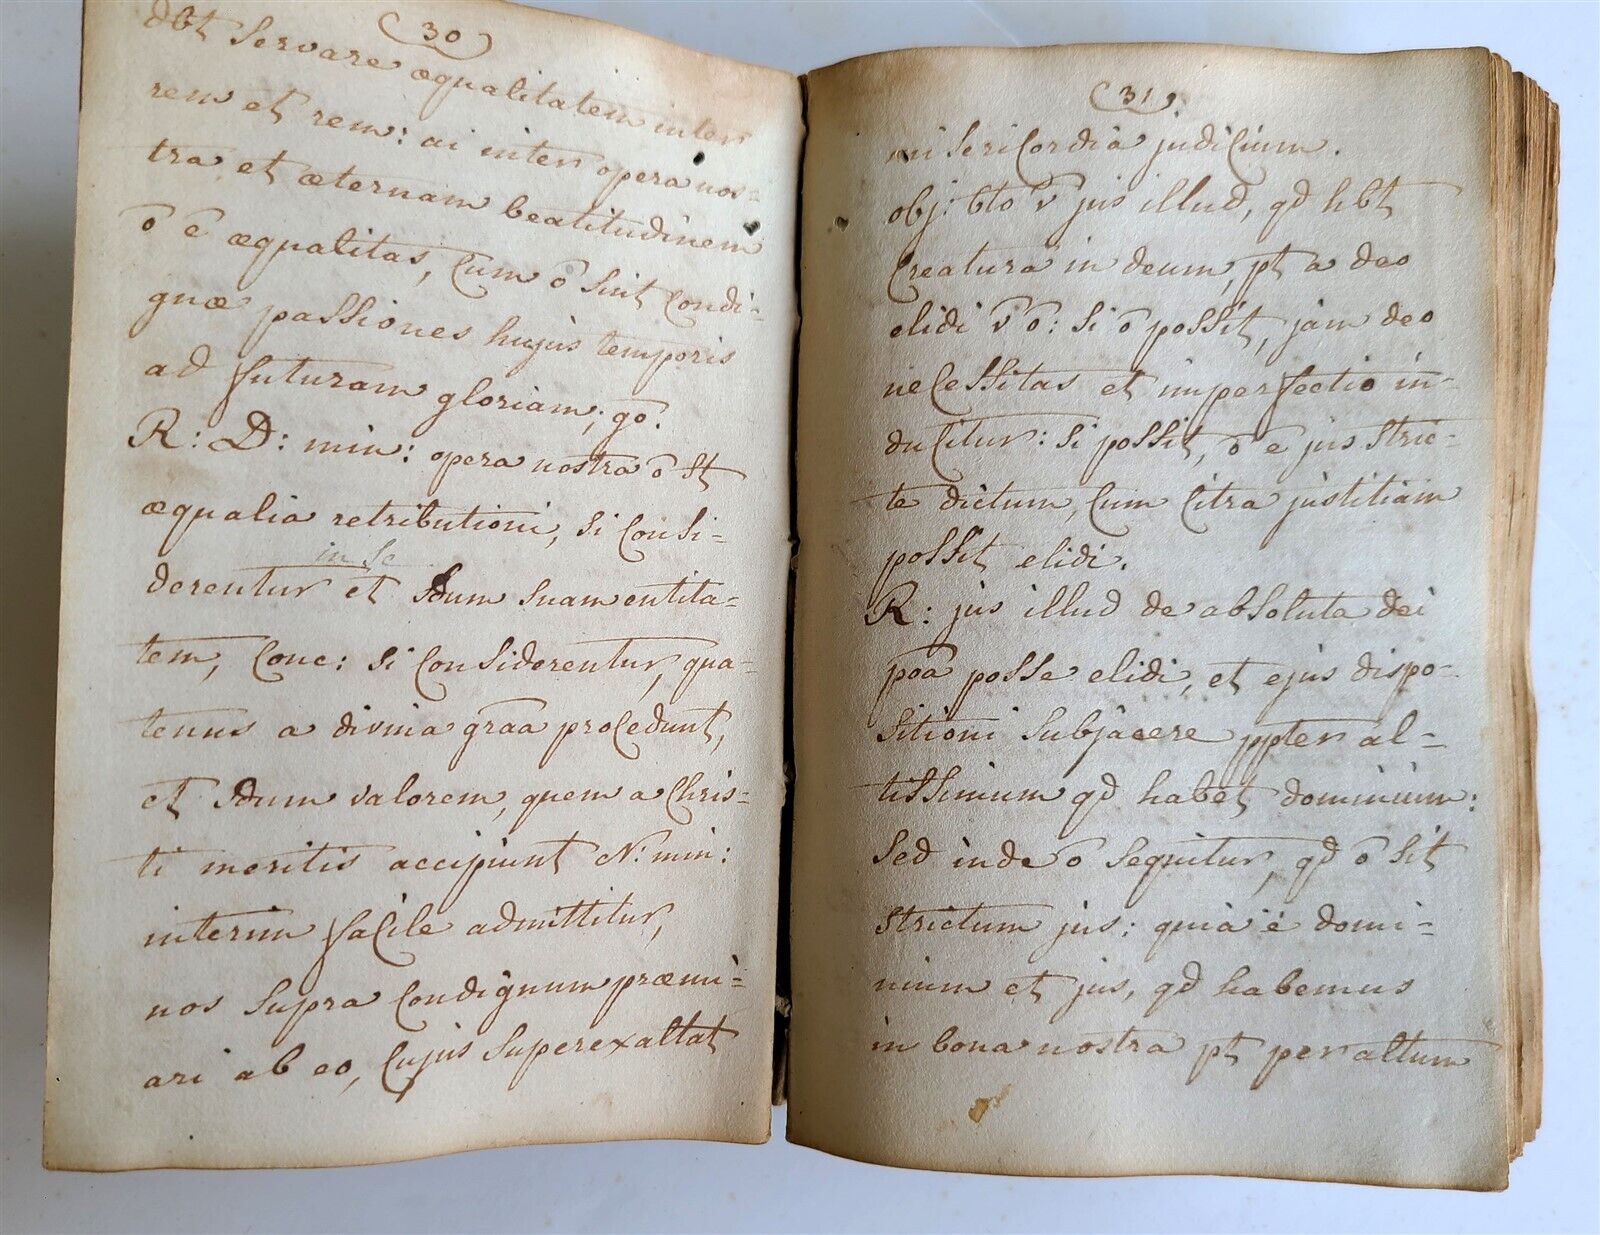 (30)
dbt servare æqualitatem inter
rem et rem: at inter opera nos=
tra et æternam beatitudinem
ō ē æqualitas, cum ō sint condi-
gnæ passiones hujus temporis
ad futuram gloriam; gō.
R: D: min: opera nostra ō st
æqualia retributioni, si consi=
in se
derentur et sdum suam entita=
tem, Conc: si considerentur, qua=
tenus a divina graa procedunt,
et sdum valorem, quem a Chris=
ti meritis accipiunt N: min:
interim facile admittitur,
nos supra condignum præmi=
ari ab eo, cujus superexaltat
(31)
misericordia judicium.
obj: 6to v̄ jus illud, qd hbt
creatura in deum, pt a deo
elidi v̄ ō: si ō possit, jam deo
necessitas et imperfectio in-
ducitur: si possit, ō ē jus stric-
te dictum, cum citra justitiam
possit elidi.
R: jus illud de absoluta dei
poa posse elidi, et ejus dispo-
sitioni subjacere ppter al=
tissimum qd habet dominium:
sed inde ō sequitur, qd ō sit
strictum jus: quia ē domi=
nium et jus, qd habemus
in bona nostra pt per altum